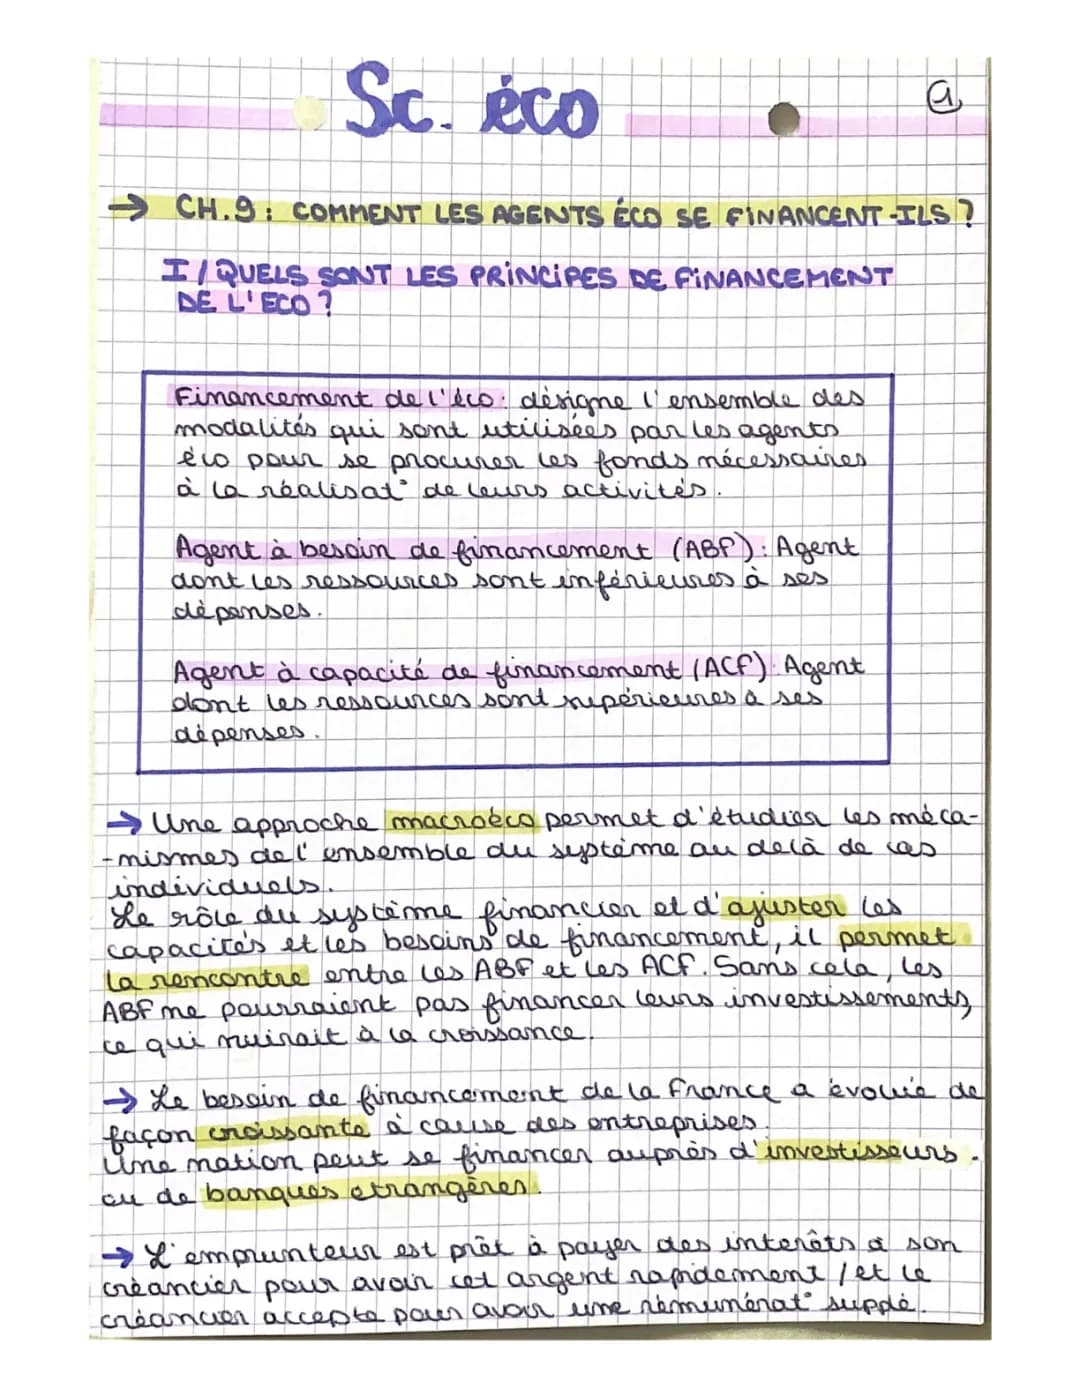 Sc. éco
a
→ CH.9 : COMMENT LES AGENTS ÉCO SE FINANCENT-ILS ?
I / QUELS SONT LES PRINCIPES DE FINANCEMENT
DE L'ECO ?
Financement de l'éco : désigne l'ensemble des
modalités qui sont utilisées par les agents
éco pour se procurer les fonds nécessaires
à la réalisat° de leurs activités.
Agent à besoin de financement (ABF) : Agent
dont les ressources sont inférieures à ses
dépenses.
Agent à capacité de financement (ACF) : Agent
dont les ressources sont supérieures à ses
dépenses.
→ Une approche macroéco permet d'étudier les méca-
-nismes de l'ensemble du système au delà de cas
individuels.
Le rôle du système financier et d'ajuster les
capacités et les besoins de financement, il permet
la rencontre entre les ABF et les ACF. Sans cela, les
ABF ne pourraient pas financer leurs investissements,
ce qui nuirait à la croissance.
→ Le besoin de financement de la France a évolué de
façon croissante à cause des entreprises.
Une nation peut se financer auprès d'investisseurs
ou de banques etrangères.
→ L'emprunteur est prêt à payer des interêts à son
créancier pour avoir cet argent rapidement / et le
créancier accepte pour avoir une rémunérat° supplé.